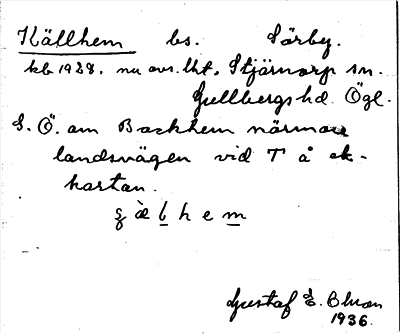 Källhem bs. Sörby.
kb 1928. nu avs. lht. Stjärnorp sn.
Gullbergs hd. Ögl.
S. Ö. om Backhem närmare
landsvägen vid T å ek-
kartan.
Gustaf E. Bluon
1936.